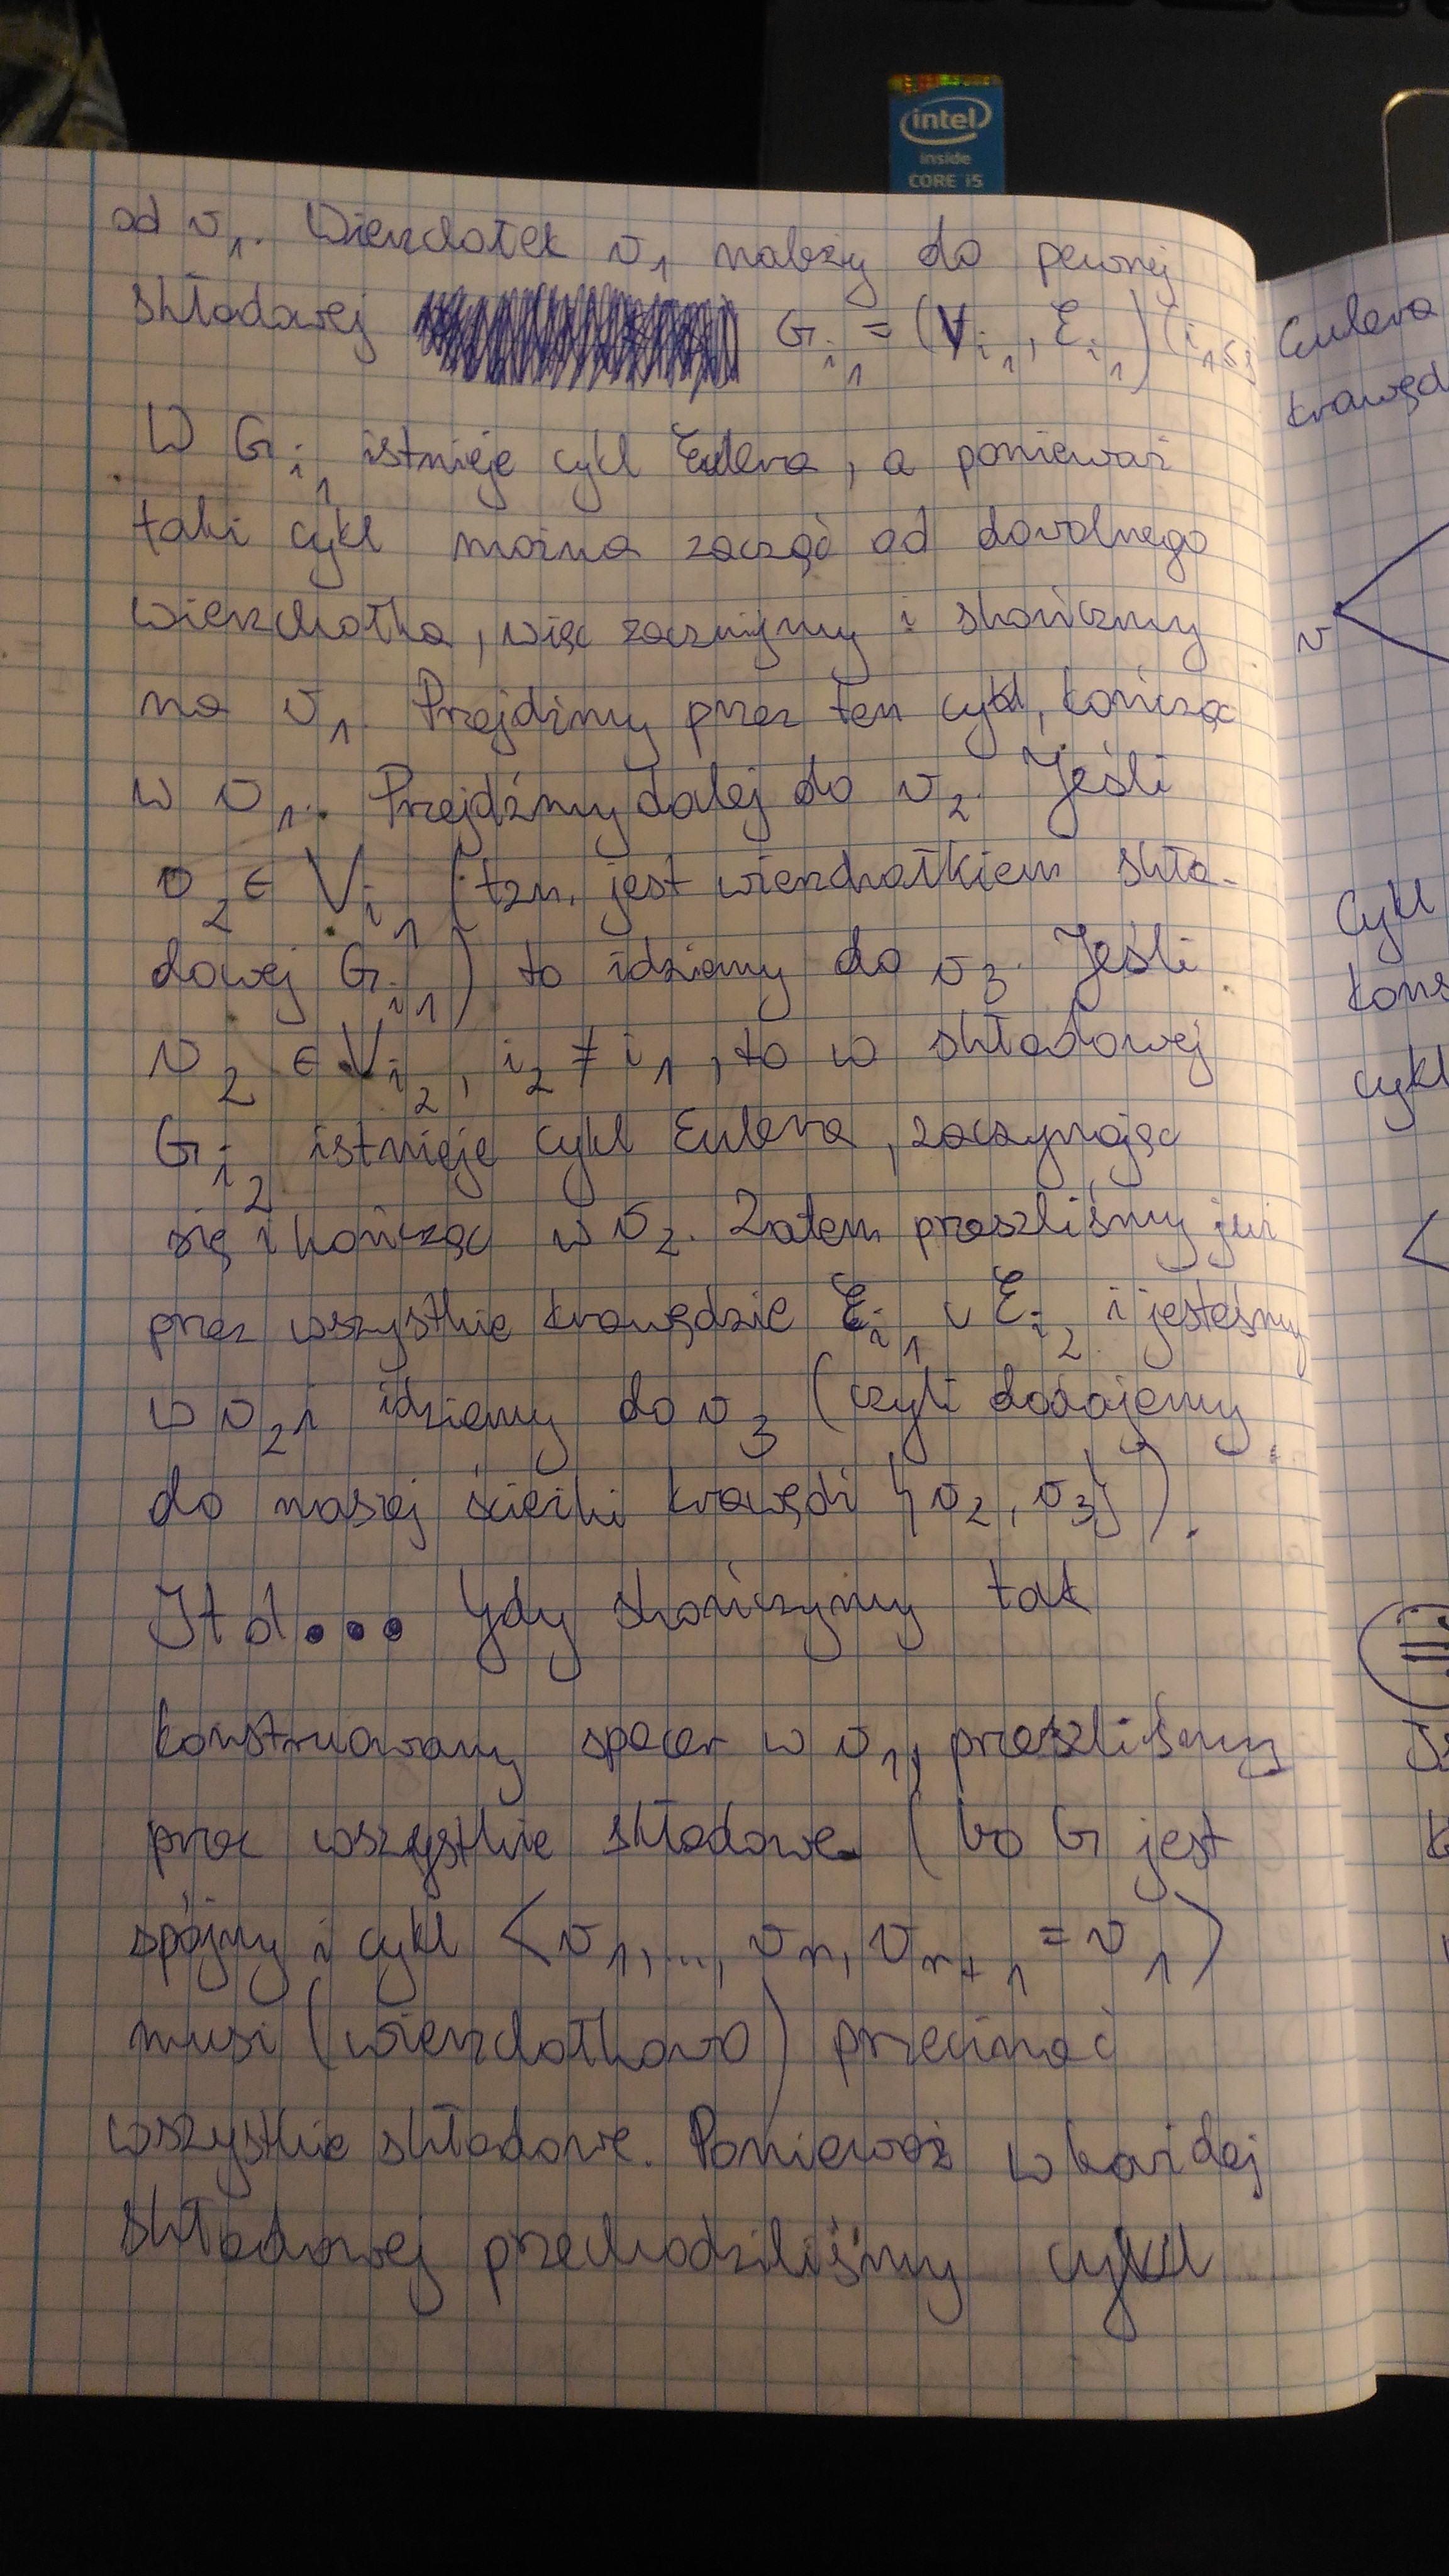 intel
inside
CORE i5
od v₁. Wierzchołek v₁ należy do pewnej
składowej G_{i₁} = (V_{i₁}, E_{i₁}) (i₁
W G_{i₁} istnieje cykl Eulera, a ponieważ
taki cykl można zacząć od dowolnego
wierzchołka, więc zacznijmy i skończmy
na v₁. Przejdźmy przez ten cykl, kończąc
w v₁. Przejdźmy dalej do v₂. Jeśli
v₂ ∈ V_{i₁} (tzn. jest wierzchołkiem skła-
dowej G_{i₁}) to idziemy do v₃. Jeśli
v₂ ∈ V_{i₂}, i₂ ≠ i₁, to w składowej
G_{i₂} istnieje cykl Eulera, zaczynając
się i kończąc w v₂. Zatem przeszliśmy już
przez wszystkie krawędzie E_{i₁} ∪ E_{i₂} i jesteśmy
w v₂ i idziemy do v₃ (czyli dodajemy
do naszej ścieżki krawędź {v₂, v₃}).
Itd... Gdy skończymy tak
konstruowany spacer w v₁, przeszliśmy
przez wszystkie składowe (bo G jest
spójny i cykl <v₁, ..., vₙ, vₙ₊₁ = v₁>
musi (wierzchołkowo) przecinać
wszystkie składowe. Ponieważ w każdej
składowej przechodziliśmy cykl
Eulera
krawęd
v
Cykl
kons
cykl